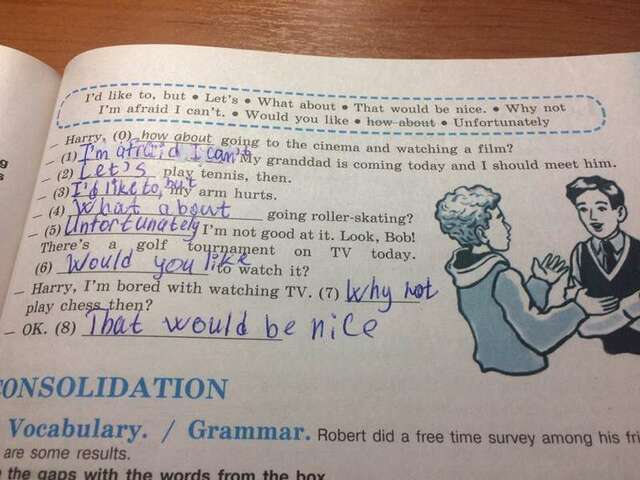 I'd like to, but • Let's • What about • That would be nice. • Why not
I'm afraid I can't. • Would you like • how about • Unfortunately
– Harry, (0) how about going to the cinema and watching a film?
– (1) I'm afraid I can't My granddad is coming today and I should meet him.
– (2) Let's play tennis, then.
– (3) I'd like to, but my arm hurts.
– (4) What about going roller-skating?
– (5) Unfortunately I'm not good at it. Look, Bob!
There's a golf tournament on TV today.
(6) Would you like to watch it?
– Harry, I'm bored with watching TV. (7) Why not
play chess then?
– OK. (8) That would be nice
ONSOLIDATION
Vocabulary. / Grammar. Robert did a free time survey among his fri
are some results.
the gaps with the words from the box.